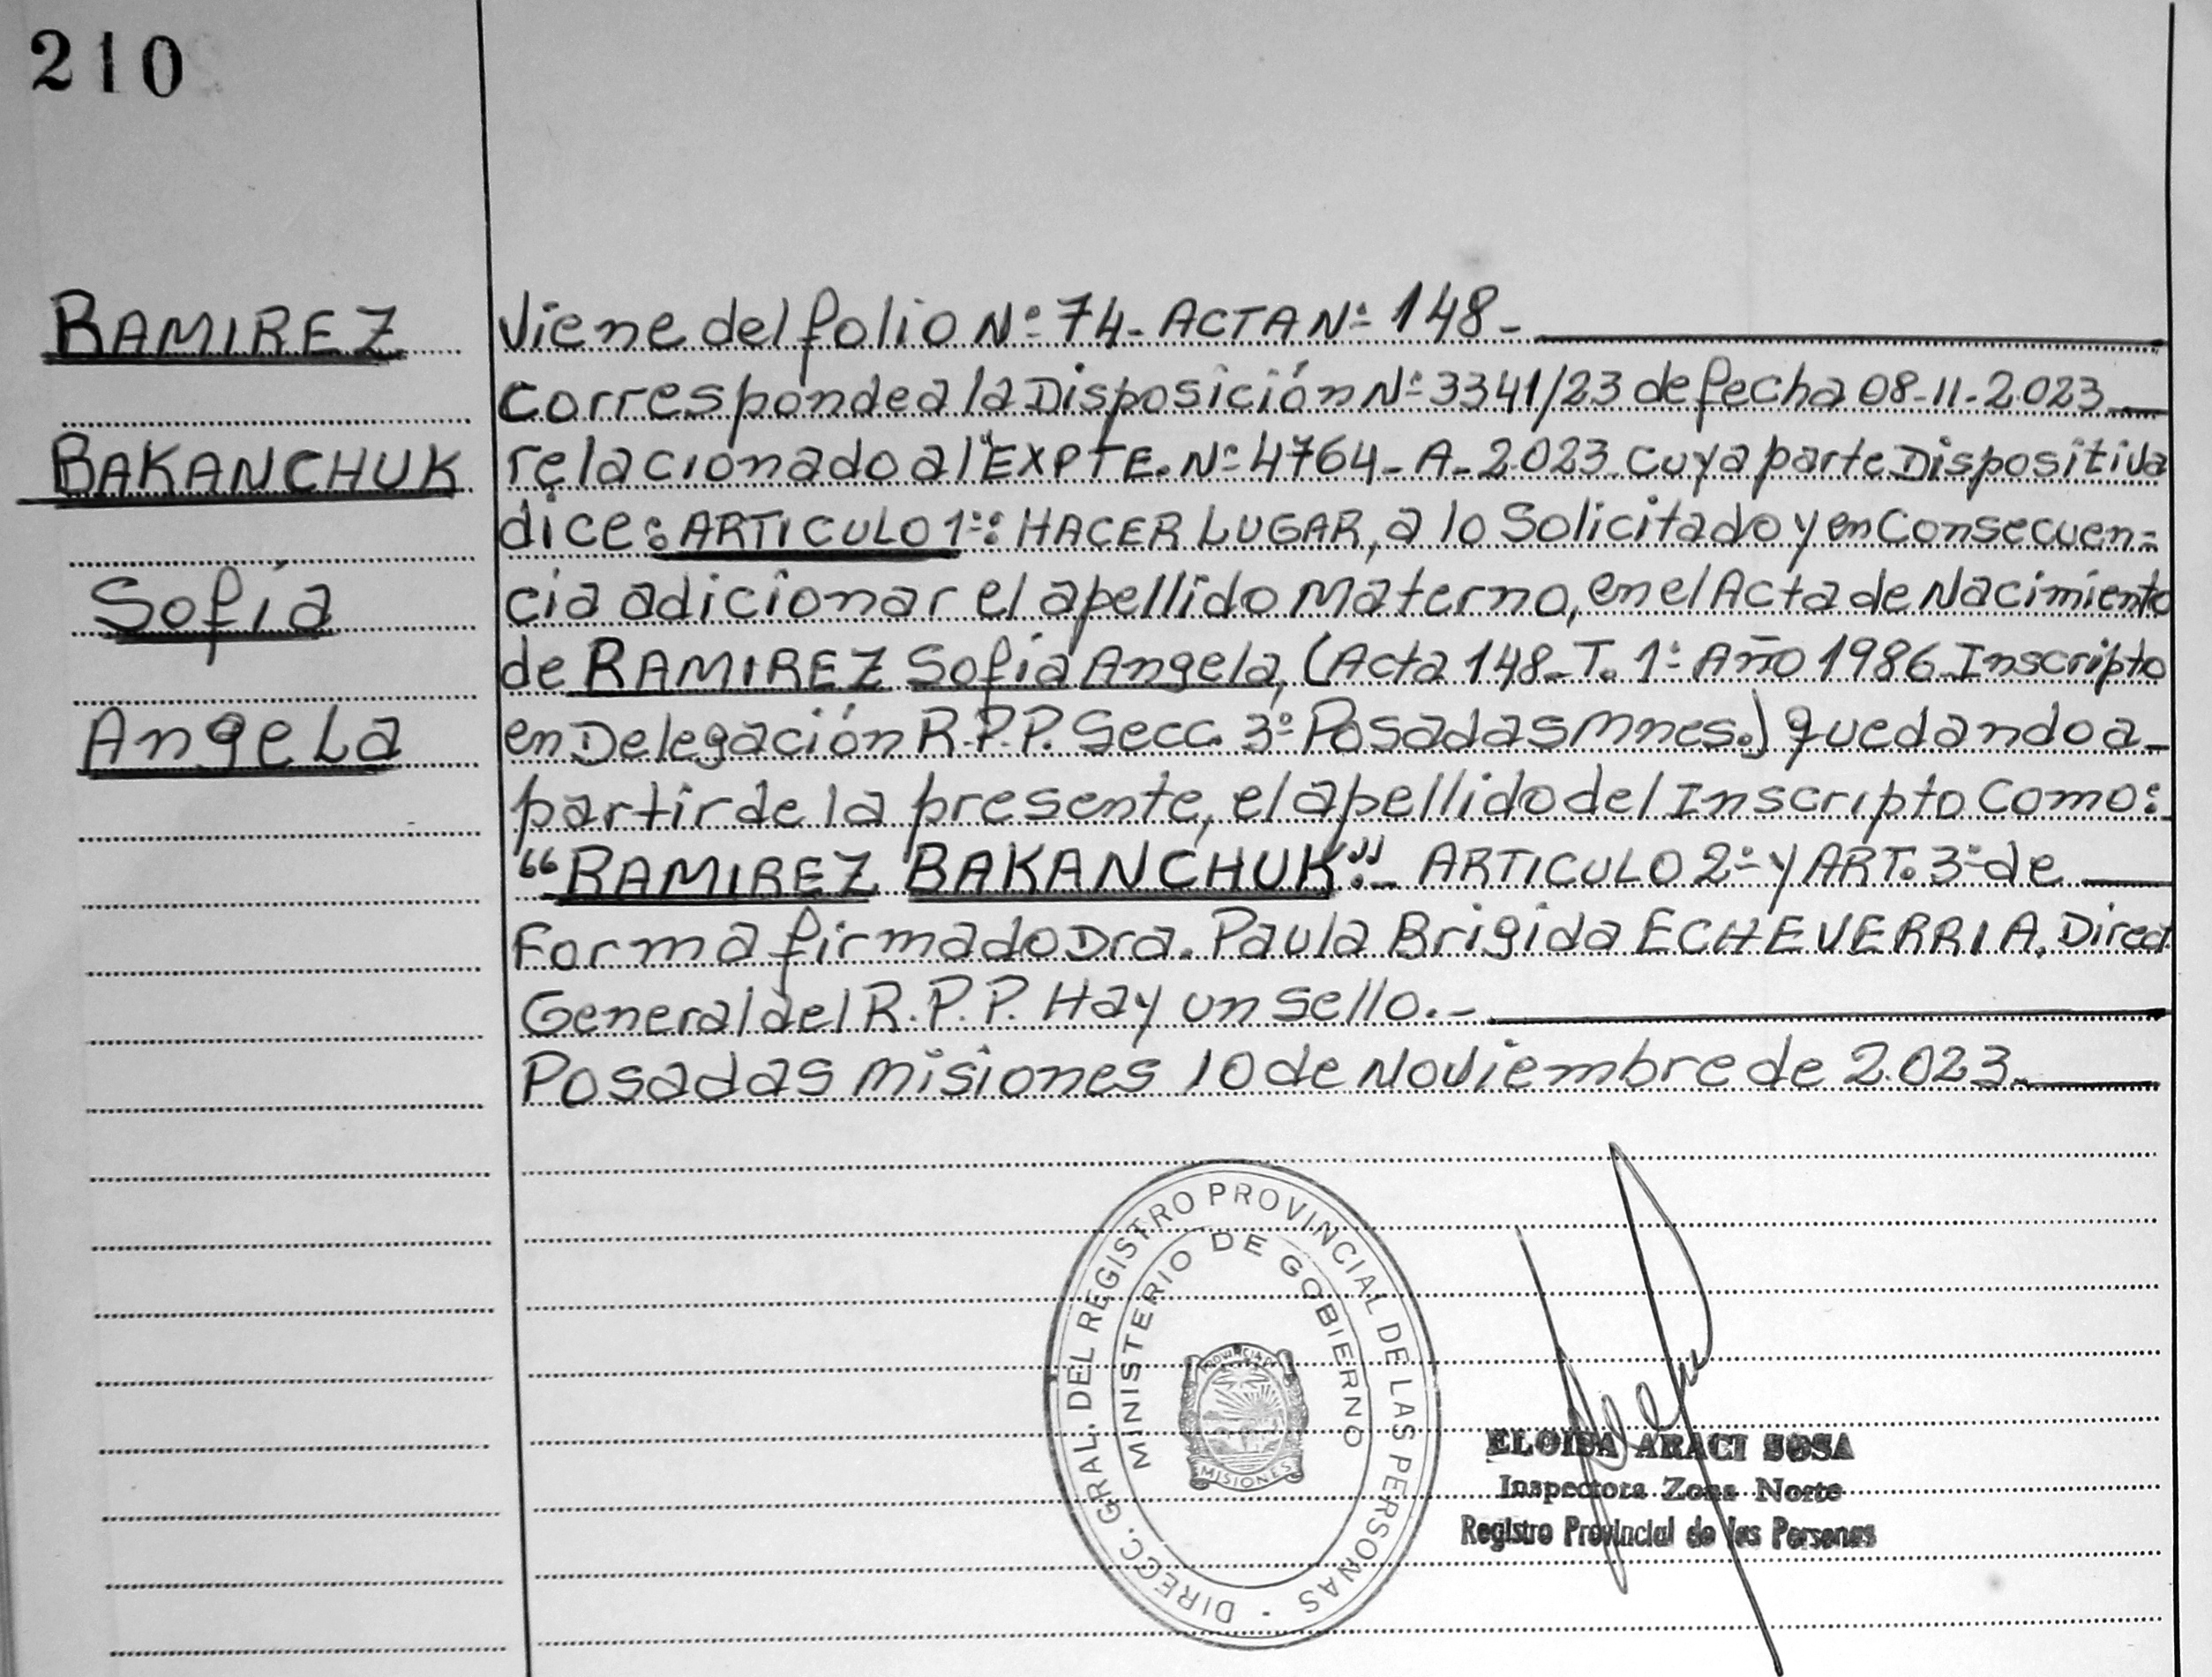 210
RAMIREZ
BAKANCHUK
Sofía
Angela
Viene del folio Nº 74- ACTA Nº 148-
Corresponde a la Disposición Nº 3341/23 de fecha 08-11-2.023
relacionado al "EXPTE. Nº 4764- A- 2.023 Cuya parte Dispositiva
dice: ARTICULO 1º: HACER LUGAR, a lo Solicitado y en Consecuen=
cia adicionar el apellido Materno, en el Acta de Nacimiento
de RAMIREZ Sofía Angela, (Acta 148- T. 1º Año 1986 Inscripto
en Delegación R.P.P. Secc. 3º Posadas Mnes.) quedando a-
partir de la presente, el apellido del Inscripto Como:
"RAMIREZ BAKANCHUK".- ARTICULO 2º y ART. 3º de
Forma firmado Dra. Paula Brigida ECHEVERRIA. Direct
General del R.P.P. Hay un Sello.-
Posadas Misiones 10 de Noviembre de 2.023.
DIRECC. GRAL. DEL REGISTRO PROVINCIAL DE LAS PERSONAS -
MINISTERIO DE GOBIERNO
PROVINCIA DE
MISIONES
ELOISA ARACI SOSA
Inspectora Zona Norte
Registro Provincial de las Personas